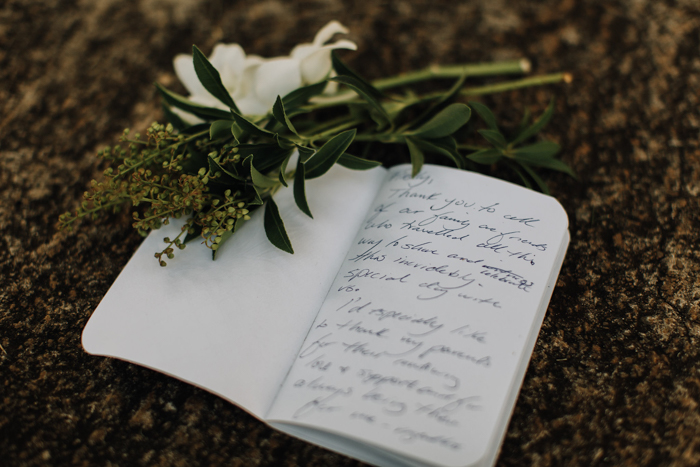 Thank you to all
of our family and friends
who travelled all this
way to share and celebrate
this incredibly
special day with
us.
I'd especially like
to thank my parents
for their unending
love & support and for
always being there
for me